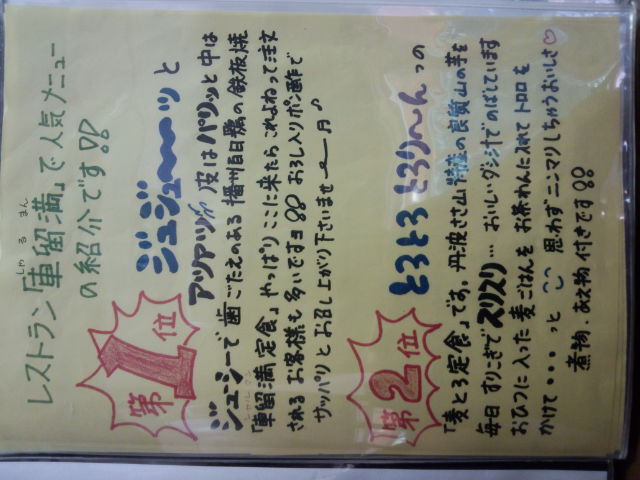 レストラン「車留満」で人気メニュー
しゃるまん
の紹介です!!
第1位
ジュジュ〜〜〜ッと
アツアツ 皮はパリッと中は
ジューシーで歯ごたえのある播州百日鶏の鉄板焼
シャルマン
「車留満定食」やっぱりここに来たらこれよねって注文
される お客様も多いですヨ!! おろし入りポン酢で
サッパリとお召し上がり下さいませ〜♪
第2位
とろとろ とろり〜ん っの
「麦とろ定食」です。丹波ささ山 特産の良質山の芋を
毎日 すりこぎでスリスリ… おいしいダシ汁でのばしています
おひつに入った麦ごはんを お茶わんに入れて トロロを
かけて・・・っと 思わずニンマリしちゃうおいしさ♡
煮物、あえ物 付きです!!